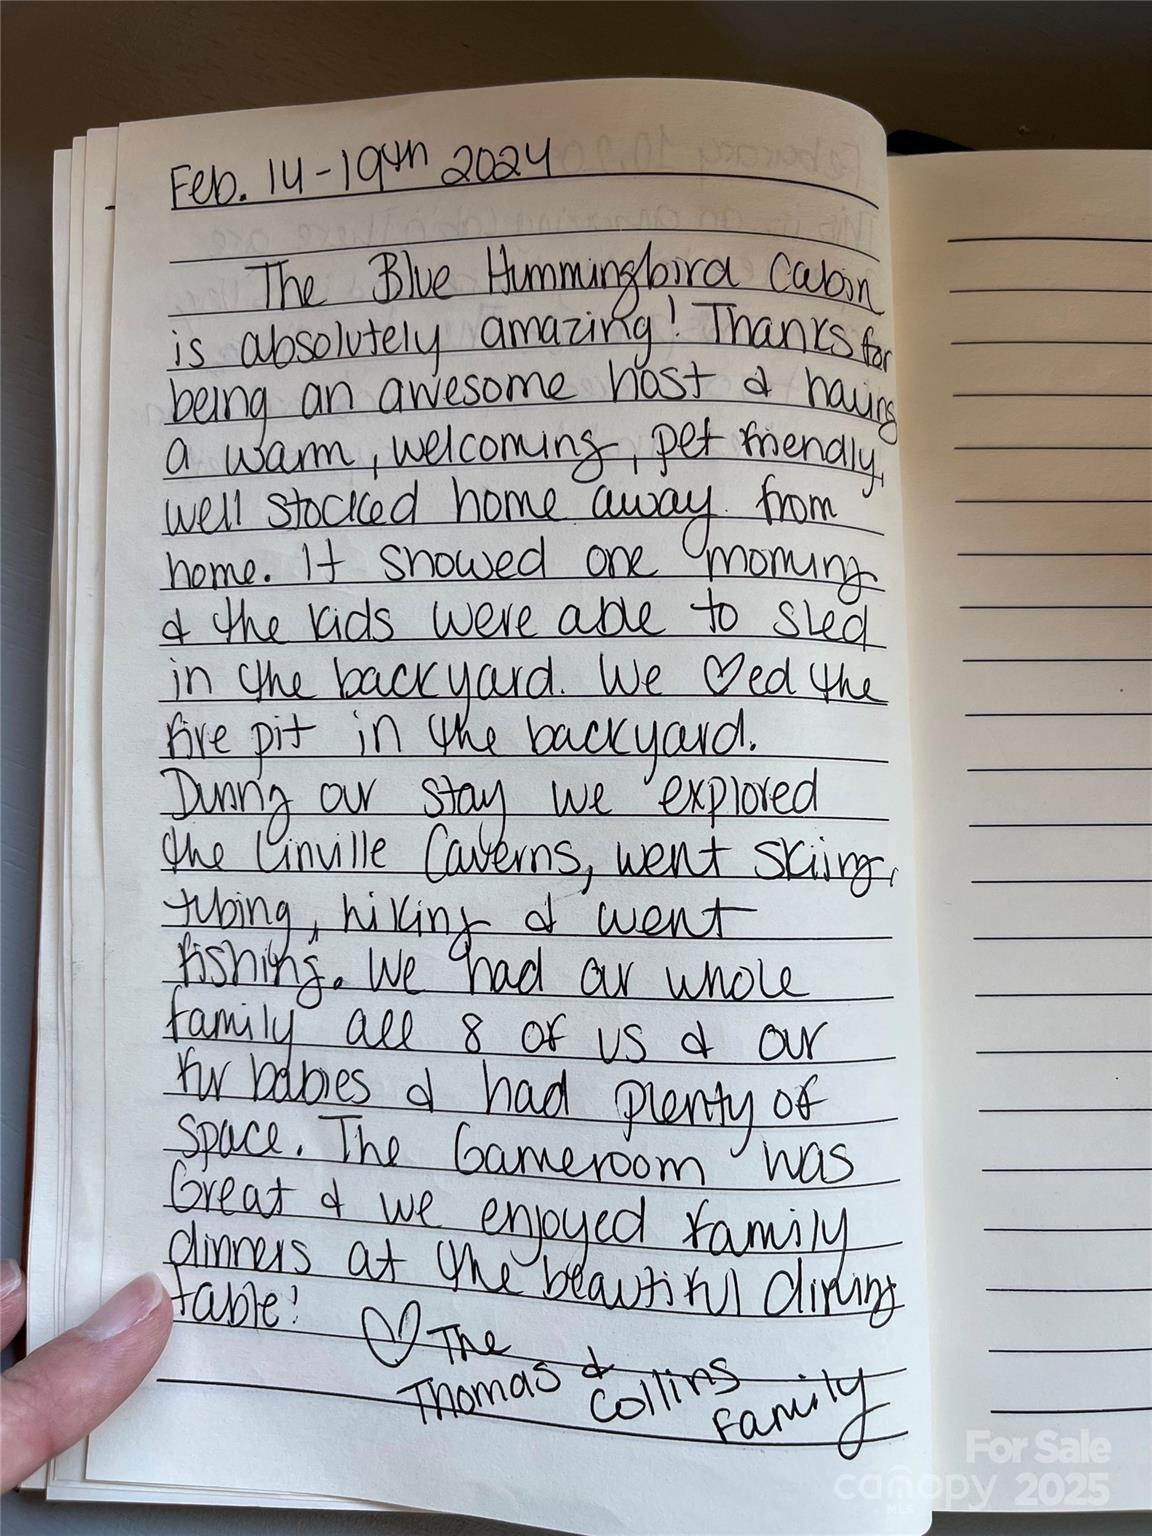 Feb. 14-19th 2024
The Blue Hummingbird Cabin
is absolutely amazing! Thanks for
being an awesome host & having
a warm, welcoming, pet friendly,
well stocked home away from
home. It snowed one morning
& the kids were able to sled
in the backyard. We ♡ed the
fire pit in the backyard.
During our stay we explored
the Linville Caverns, went skiing,
tubing, hiking & went
fishing. We had our whole
family all 8 of us & our
fur babies & had plenty of
space. The Gameroom was
Great & we enjoyed family
dinners at the beautiful dining
table!
♡ The
Thomas & Collins
Family
For Sale
canopy 2025
MLS